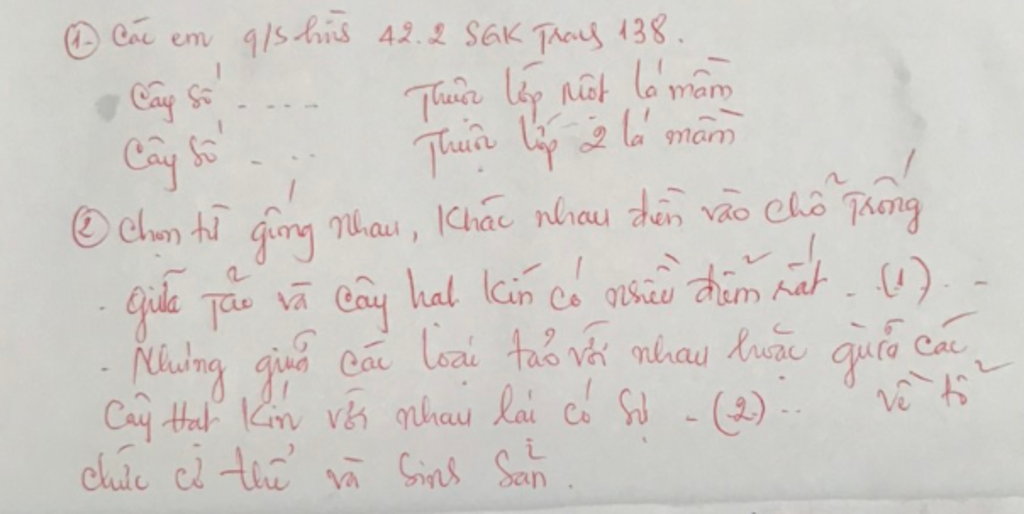 ① Các em q/s hình 42.2 SGK Trang 138.
Cây số .... Thuộc lớp một lá mầm
Cây số ... Thuộc lớp 2 lá mầm
② Chọn từ giống nhau, khác nhau điền vào chỗ trống
- giữa Tảo và cây hạt kín có nhiều điểm rất .. (1) ..
- Nhưng giữa các loại tảo với nhau hoặc giữa các
cây Hạt kín với nhau lại có sự .. (2) .. về tổ
chức cơ thể và sinh sản.